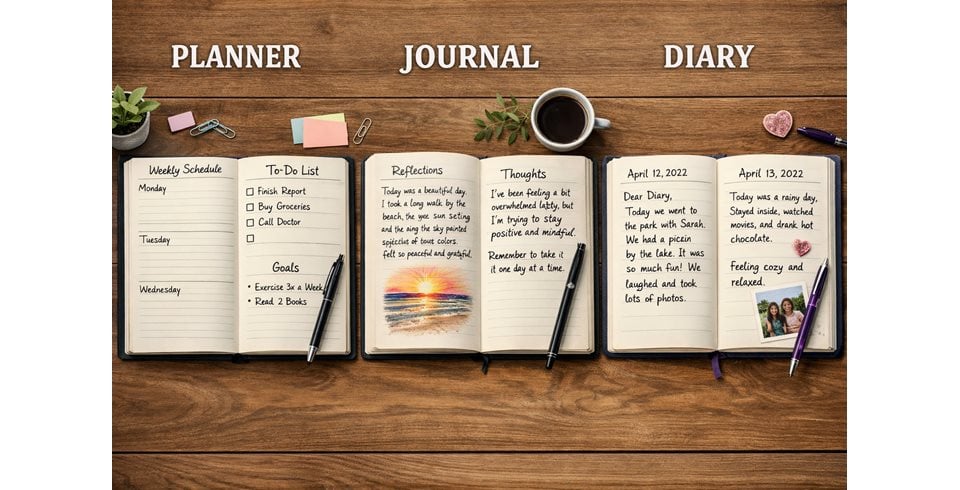 PLANNER
JOURNAL
DIARY
Weekly Schedule
Monday
Tuesday
Wednesday
To-Do List
Finish Report
Buy Groceries
Call Doctor
Goals
• Exercise 3x a Week
• Read 2 Books
Reflections
Today was a beautiful day.
I took a long walk by the
beach, the sun seting
and the the sky painted
of colors.
felt so peaceful and grateful.
Thoughts
I've been feeling a bit
overwhelmed but
I'm trying to stay
positive and mindful.
Remember to take it
it one day at a time.
April 12, 2022
Dear Diary,
Today we went to
the park with Sarah.
We had a
by the lake. It was
so much fun! We
laughed and took
lots of photos.
April 13, 2022
Today was a rainy day,
Stayed inside, watched
movies, and drank hot
chocolate.
Feeling cozy and
relaxed.